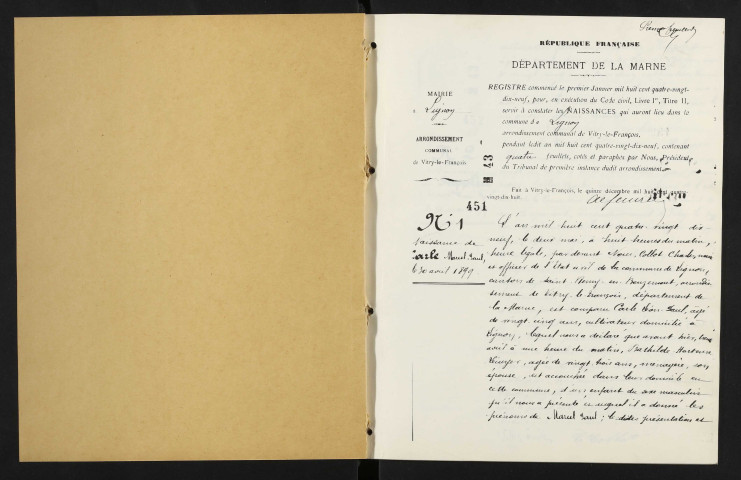 RÉPUBLIQUE FRANÇAISE
DÉPARTEMENT DE LA MARNE
MAIRIE
ARRONDISSEMENT
COMMUNAL
de Vitry-le-François
REGISTRE commencé le premier Janvier mil huit cent quatre-vingt-
dix-neuf, pour, en exécution du Code civil, Livre Ier, Titre II,
servir à constater les NAISSANCES qui auront lieu dans la
commune de Lignon
arrondissement communal de Vitry-le-François,
pendant ledit an mil huit cent quatre-vingt-dix-neuf, contenant
quatre feuillets, cotés et paraphés par Nous, Président
du Tribunal de première instance dudit arrondissement.
43
Fait à Vitry-le-François, le quinze décembre mil huit cent quatre-
vingt-dix-huit.
451
N° 1
Naissance de
Carle Marcel Paul,
30 avril 1899
L'an mil huit cent quatre-vingt dix-
neuf, le deux mai, à huit heures du matin,
heure légale, par devant Nous, Collot Charles, maire
et officier de l'État civil de la commune de Lignon,
canton de Saint-Remy-en-Bouzemont, arrondis-
sement de Vitry-le-François, département de
la Marne, est comparu Carle Léon Paul, âgé
de vingt cinq ans, cultivateur domicilié à
Lignon, lequel nous a déclaré que avant hier, trente
avril à une heure du matin, Bathilde Hortense
âgée de vingt trois ans, ménagère, son
épouse, est accouchée dans leur domicile en
cette commune, d'un enfant du sexe masculin
qu'il nous a présenté et auquel il a donné les
prénoms de Marcel Paul; lesdites présentation et